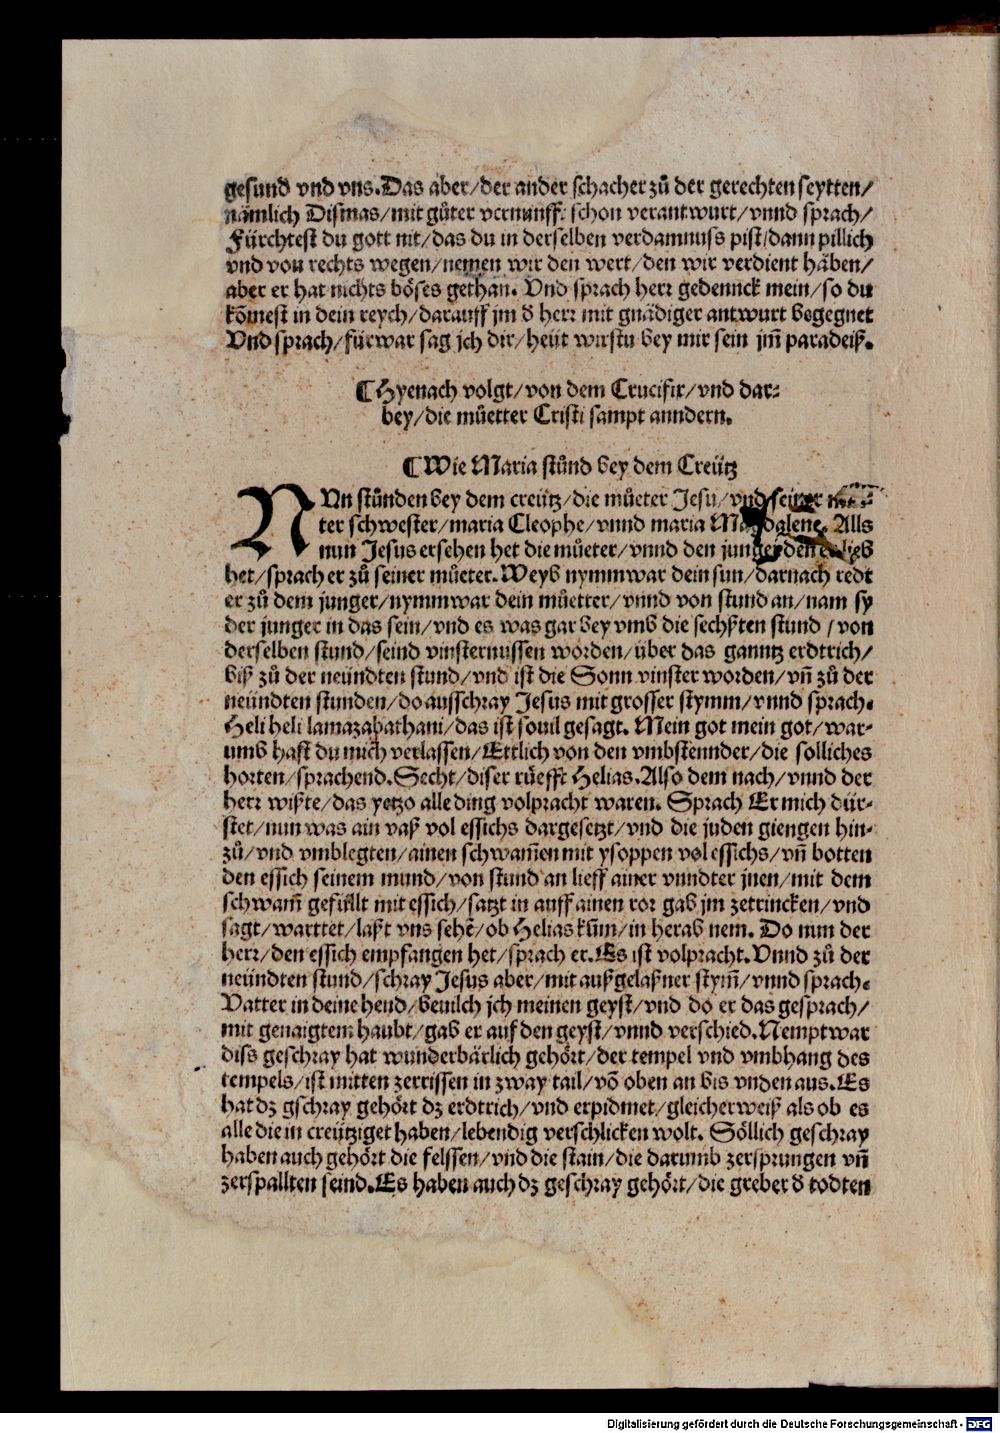 gesund vnd vns. Das aber/der ander schacher zů der gerechten seytten/
nämlich Dismas/mit gůter vernunfft schon verantwurt/vnnd sprach/
Fürchtest du gott nit/das du in derselben verdamnuss pist/dann pillich
vnd von rechts wegen/nemen wir den wert/den wir verdient häben/
aber er hat nichts böses gethan. Vnd sprach herr gedennck mein/so du
kōmest in dein reych/darauff jm đ herr mit gnädiger antwurt begegnet
Vnd sprach/fürwar sag jch dir/heüt wirstu bey mir sein jm̄ paradeiß.
¶ Hyenach volgt/von dem Crucifix/vnd dar⸗
bey/die můetter Cristi sampt anndern.
¶ Wie Maria stůnd bey dem Creütz
NVn stůnden bey dem creütz/die můeter Jesu/vnd seiner
ter schwester/maria Cleophe/vnnd maria Magdalene. Alls
nun Jesus ersehen het die můeter/vnnd den junger den er lieb
het/sprach er zů seiner můeter. Weyb nymmwar dein sun/darnach redt
er zů dem junger/nymmwar dein můetter/vnnd von stund an/nam sy
der junger in das sein/vnd es was gar bey vmb die sechsten stund/von
derselben stund/seind vinsternussen worden/über das ganntz erdtrich/
biß zů der neündten stund/vnd ist die Sonn vinster worden/vn̄ zů der
neündten stunden/do ausschray Jesus mit grosser stymm/vnnd sprach.
Heli heli lamazabathani/das ist souil gesagt. Mein got mein got/war⸗
umb hast du mich verlassen/Ettlich von den vmbstennder/die solliches
horten/sprachend. Secht/diser růefft Helias. Also dem nach/vnnd der
herr wißte/das yetzo alle ding volpracht waren. Sprach Er mich dür⸗
stet/nun was ain vaß vol essichs dargesetzt/vnd die juden giengen hin⸗
zů/vnd vmblegten/ainen schwam̄en mit ysoppen vol essichs/vn̄ botten
den essich seinem mund/von stund an lieff ainer vnndter jnen/mit dem
schwam̄ gefüllt mit essich/satzt in auff ainen ror gab jm zetrincken/vnd
sagt/warttet/laßt vns sehē/ob Helias kum̄/in herab nem. Do nun der
herr/den essich empfangen het/sprach er. Es ist volpracht. Vnnd zů der
neündten stund/schray Jesus aber/mit außgelaßner stym̄/vnnd sprach.
Vatter in deine hend/beuilch jch meinen geyst/vnd do er das gesprach/
mit genaigtem haubt/gab er auf den geyst/vnnd verschied. Nemptwar
diss geschray hat wunderbärlich gehört/der tempel vnd vmbhang des
tempels/ist mitten zerrissen in zway tail/vō oben an bis vnden aus. Es
hat dz gschray gehört dz erdtrich/vnd erpidmet/gleicherweiß als ob es
alle die in creütziget haben/lebendig verschlicken wolt. Söllich geschray
haben auch gehört die felssen/vnd die stain/die darumb zersprungen vn̄
zerspallten seind. Es haben auch dz geschray gehört/die greber đ todten
Digitalisierung gefördert durch die Deutsche Forschungsgemeinschaft - DFG